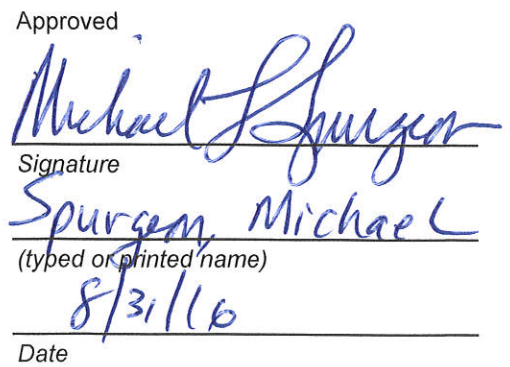 Approved
Michael L Spurgeon
Signature
Spurgeon, Michael
(typed or printed name)
8/31/16
Date